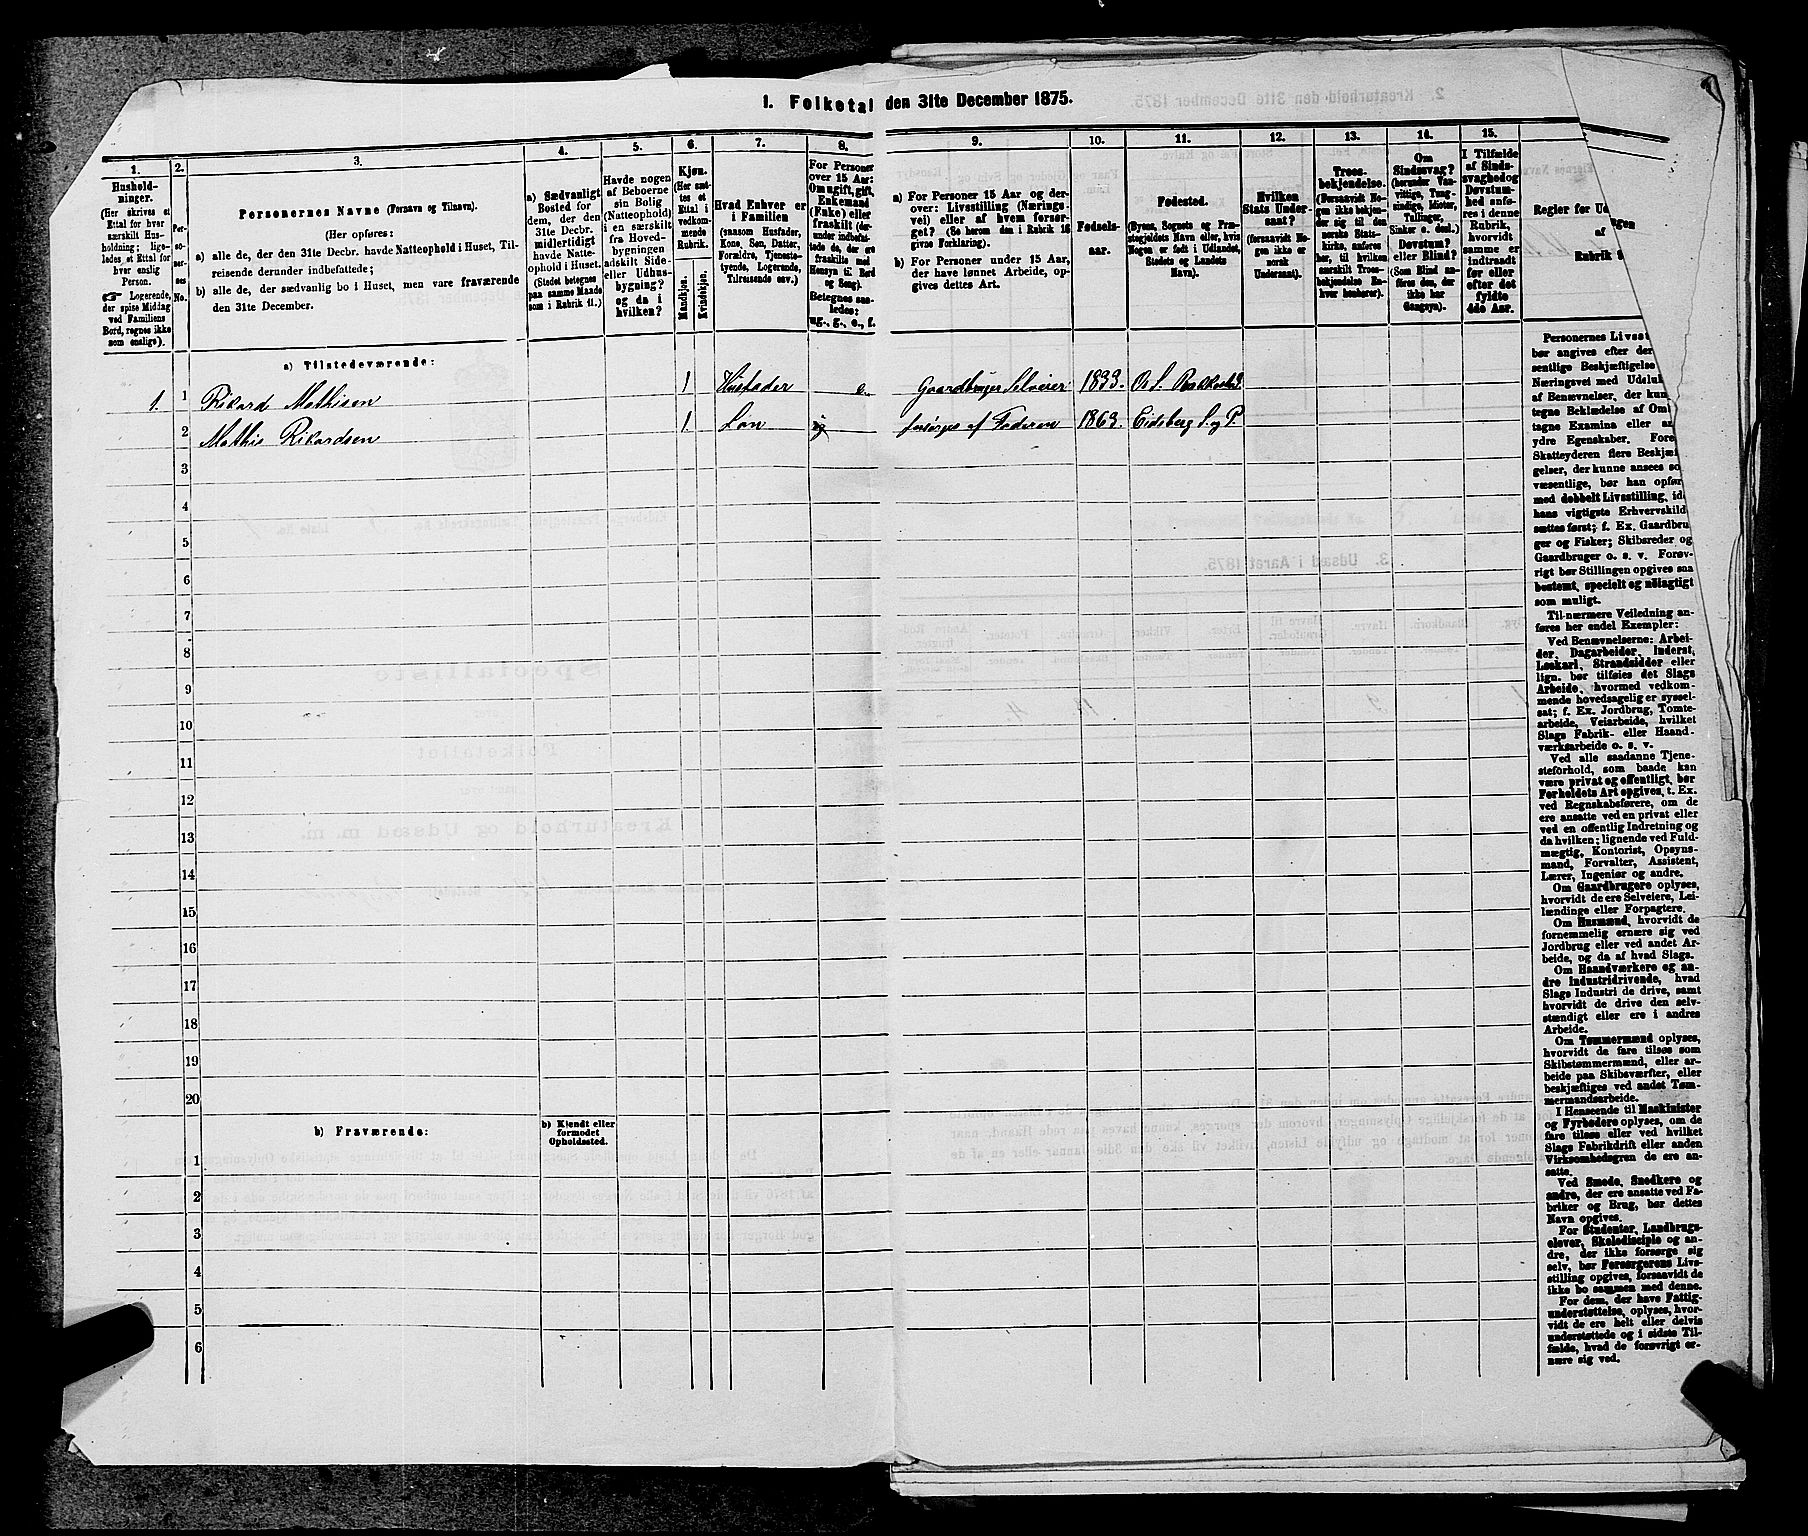 1. Folketal den 31te December 1875.
1.
Hushold-
ninger.
(Her skrives et
Ettal for hver
særskilt Hus-
holdning; lige-
ledes et Ettal for
hver enslig
Person.
☞ Logerende,
der spise Middag
ved Familiens
Bord, regnes ikke
som enslige).
2.
Per-
so-
ner-
nes
No.
3.
Personernes Navne (Fornavn og Tilnavn).
(Her opføres:
a) alle de, der den 31te Decbr. havde Natteophold i Huset, Til-
reisende derunder indbefattede;
b) alle de, der sædvanlig bo i Huset, men vare fraværende
den 31te December.
4.
a) Sædvanligt
Bosted for
dem, der den
31te Decbr.
midlertidigt
havde Natte-
ophold i Huset.
(Stedet betegnes
paa samme Maade
som i Rubrik 11.)
5.
Havde nogen
af Beboerne
sin Bolig
(Natteophold)
i en særskilt
fra Hoved-
bygningen
adskilt Side-
eller Udhus-
bygning?
og da i
hvilken?
6.
Kjøn.
(Her sæt-
tes et
Ettal i
vedkom-
mende
Rubrik.
Mandkjøn.
Kvindekjøn.
7.
Hvad Enhver er
i Familien
(saasom Husfader,
Kone, Søn, Datter,
Forældre, Tjeneste-
tyende, Logerende,
Tilreisende osv.)
8.
For Personer
over 15 Aar:
Om ugift, gift,
Enkemand
(Enke) eller
fraskilt (der-
under indbefat-
tede de, der ere
fraskilte med
Hensyn til Bord
og Seng).
Betegnes saa-
ledes:
ug., g., e., f.
9.
a) For Personer 15 Aar og der-
over: Livsstilling (Nærings-
vei) eller af hvem forsør-
get? (Se herom den i Rubrik 16
givne Forklaring).
b) For Personer under 15 Aar,
der have lønnet Arbeide, op-
gives dettes Art.
10.
Fødsels-
aar.
11.
Fødested.
(Byens, Sognets og Præ-
stegjeldets Navn eller, hvis
Nogen er født i Udlandet,
Stedets og Landets
Navn).
12.
Hvilken
Stats Under-
saat?
(forsaavidt No-
gen ikke er
norsk
Undersaat).
13.
Troes-
bekjendelse.
(Forsaavidt No-
gen ikke bekjen-
der sig til den
norske Stats-
kirke, anføres
her, til hvilken
særskilt Troes-
bekjendelse En-
hver henhører).
14.
Om
Sindssvag?
(herunder Van-
vittige, Tung-
sindige, Idioter,
Tullinger,
Sinker o. desl.)
Døvstum?
eller Blind?
(Som Blind an-
føres den, der
ikke har
Gangsyn).
15.
I Tilfælde
af Sinds-
svaghed og
Døvstum-
hed anfø-
res i denne
Rubrik,
hvorvidt
samme er
indtraadt
før eller
efter det
fyldte
4de Aar.
Regler for Ud
gen
af
Rubrik 9
a) Tilstedeværende:
1. 1 Rikard Mathisen 1 Husfader e. Gaardbruger Selveier 1833. O. S. Rakkestad
2 Mathis Rikardsen 1. Søn ug forsørges af Faderen 1863. Eidsberg S. og P.
3
4
5
6
7
8
9
10
11
12
13
14
15
16
17
18
19
20
b) Fraværende:
b) Kjendt eller
formodet
Opholdssted.
1
2
3
4
5
6
Personernes Livsst
bør angives efter der
sentlige Beskjæftigelse
Næringsvei med Udeluk
af Benævnelser, der kun
tegne Beklædelse af Om
tagne Examina eller an
ydre Egenskaber. Fore
Skatteyderen flere Beskjæf
gelser, der kunne ansees so
væsentlige, bør han opfør
med dobbelt Livsstilling, id
hans vigtigste Erhvervskild
sættes først; f. Ex. Gaardbru
ger og Fisker; Skibsreder og
Gaardbruger o. s. v. Forøv-
rigt bør Stillingen opgives saa
bestemt, specielt og nøiagtigt
som muligt.
Til nærmere Veiledning an-
føres her endel Exempler:
Ved Benævnelserne: Arbei-
der, Dagarbeider, Inderst,
Løskarl, Strandsidder eller
lign. bør tilføies det Slags
Arbeide, hvormed vedkom-
mende hovedsagelig er syssel-
sat; f. Ex. Jordbrug, Tomte-
arbeide, Veiarbeide, hvilket
Slags Fabrik- eller Haand-
værksarbeide o. s. v.
Ved alle saadanne Tjene-
steforhold, som baade kan
være privat og offentligt, bør
Forholdets Art opgives, t. Ex.
ved Regnskabsførere, om de
ere ansatte ved en privat eller
ved en offentlig Indretning og
da hvilken; lignende ved Fuld-
mægtig, Kontorist, Opsyns-
mand, Forvalter, Assistent,
Lærer, Ingeniør og andre.
Om Gaardbrugere oplyses,
hvorvidt de ere Selveiere, Lei-
lændinge eller Forpagtere.
Om Husmænd, hvorvidt de
fornemmelig ernære sig ved
Jordbrug eller ved andet Ar-
beide, og da af hvad Slags.
Om Haandværkere og an-
dre industridrivende, hvad
Slags Industri de drive, samt
hvorvidt de drive den selv-
stændigt eller ere i andres
Arbeide.
Om Tømmermænd oplyses,
hvorvidt de fare tilsøs som
Skibstømmermænd, eller ar-
beide paa Skibsværfter, eller
beskjæftiges ved andet Tøm-
mermandsarbeide.
I Henseende til Maskinister
og Fyrbødere oplyses, om de
fare tilsøs eller ved hvilket
Slags Fabrikdrift eller anden
Virksomhedsgren de ere an-
satte.
Ved Smede, Snedkere og
andre, der ere ansatte ved Fa-
briker og Brug, bør dettes
Navn opgives.
For Studenter, Landbrugs-
elever, Skoledisciple og an-
dre, der ikke forsørge sig
selv, bør Forsørgerens Livs-
stilling opgives, forsaavidt de
ikke bo sammen med denne.
For dem, der have Fattig-
understøttelse, oplyses, hvor-
vidt de ere helt eller delvis
understøttede og i sidste Til-
fælde, hvad de forøvrigt er-
nære sig ved.